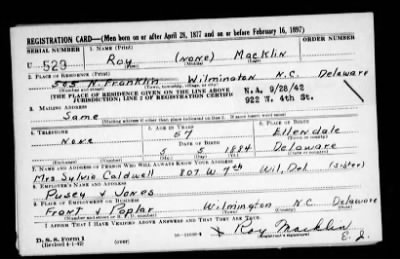 REGISTRATION CARD—(Men born on or after April 28, 1877 and on or before February 16, 1897)
SERIAL NUMBER 1. NAME (Print) ORDER NUMBER
U 529 Roy (none) Macklin
(First) (Middle) (Last)
2. PLACE OF RESIDENCE (Print)
505 N. Franklin Wilmington N.C. Delaware
(Number and street) (Town, township, village, or city) (County) (State)
[THE PLACE OF RESIDENCE GIVEN ON THE LINE ABOVE N.A. 9/28/42
JURISDICTION; LINE 2 OF REGISTRATION CERTIFIC 922 W. 4th St.
3. MAILING ADDRESS
Same
[Mailing address if other than place indicated on line 2. If same insert word same]
4. TELEPHONE 5. AGE IN YEARS 6. PLACE OF BIRTH
57 Ellendale
None DATE OF BIRTH
5 5 1884 Delaware
(Exchange) (Number) (Mo.) (Day) (Yr.) (State or country)
7. NAME AND ADDRESS OF PERSON WHO WILL ALWAYS KNOW YOUR ADDRESS
Mrs Sylvia Caldwell 807 W 7th Wil, Del (sister)
8. EMPLOYER'S NAME AND ADDRESS
Pusey & Jones
9. PLACE OF EMPLOYMENT OR BUSINESS
Front & Poplar Wilmington N C Delaware
(Number and street or R. F. D. number) (Town) (County) (State)
I AFFIRM THAT I HAVE VERIFIED ABOVE ANSWERS AND THAT THEY ARE TRUE.
D. S. S. Form 1 x Roy Macklin
(Revised 4-1-42) (over) (Registrant's signature)